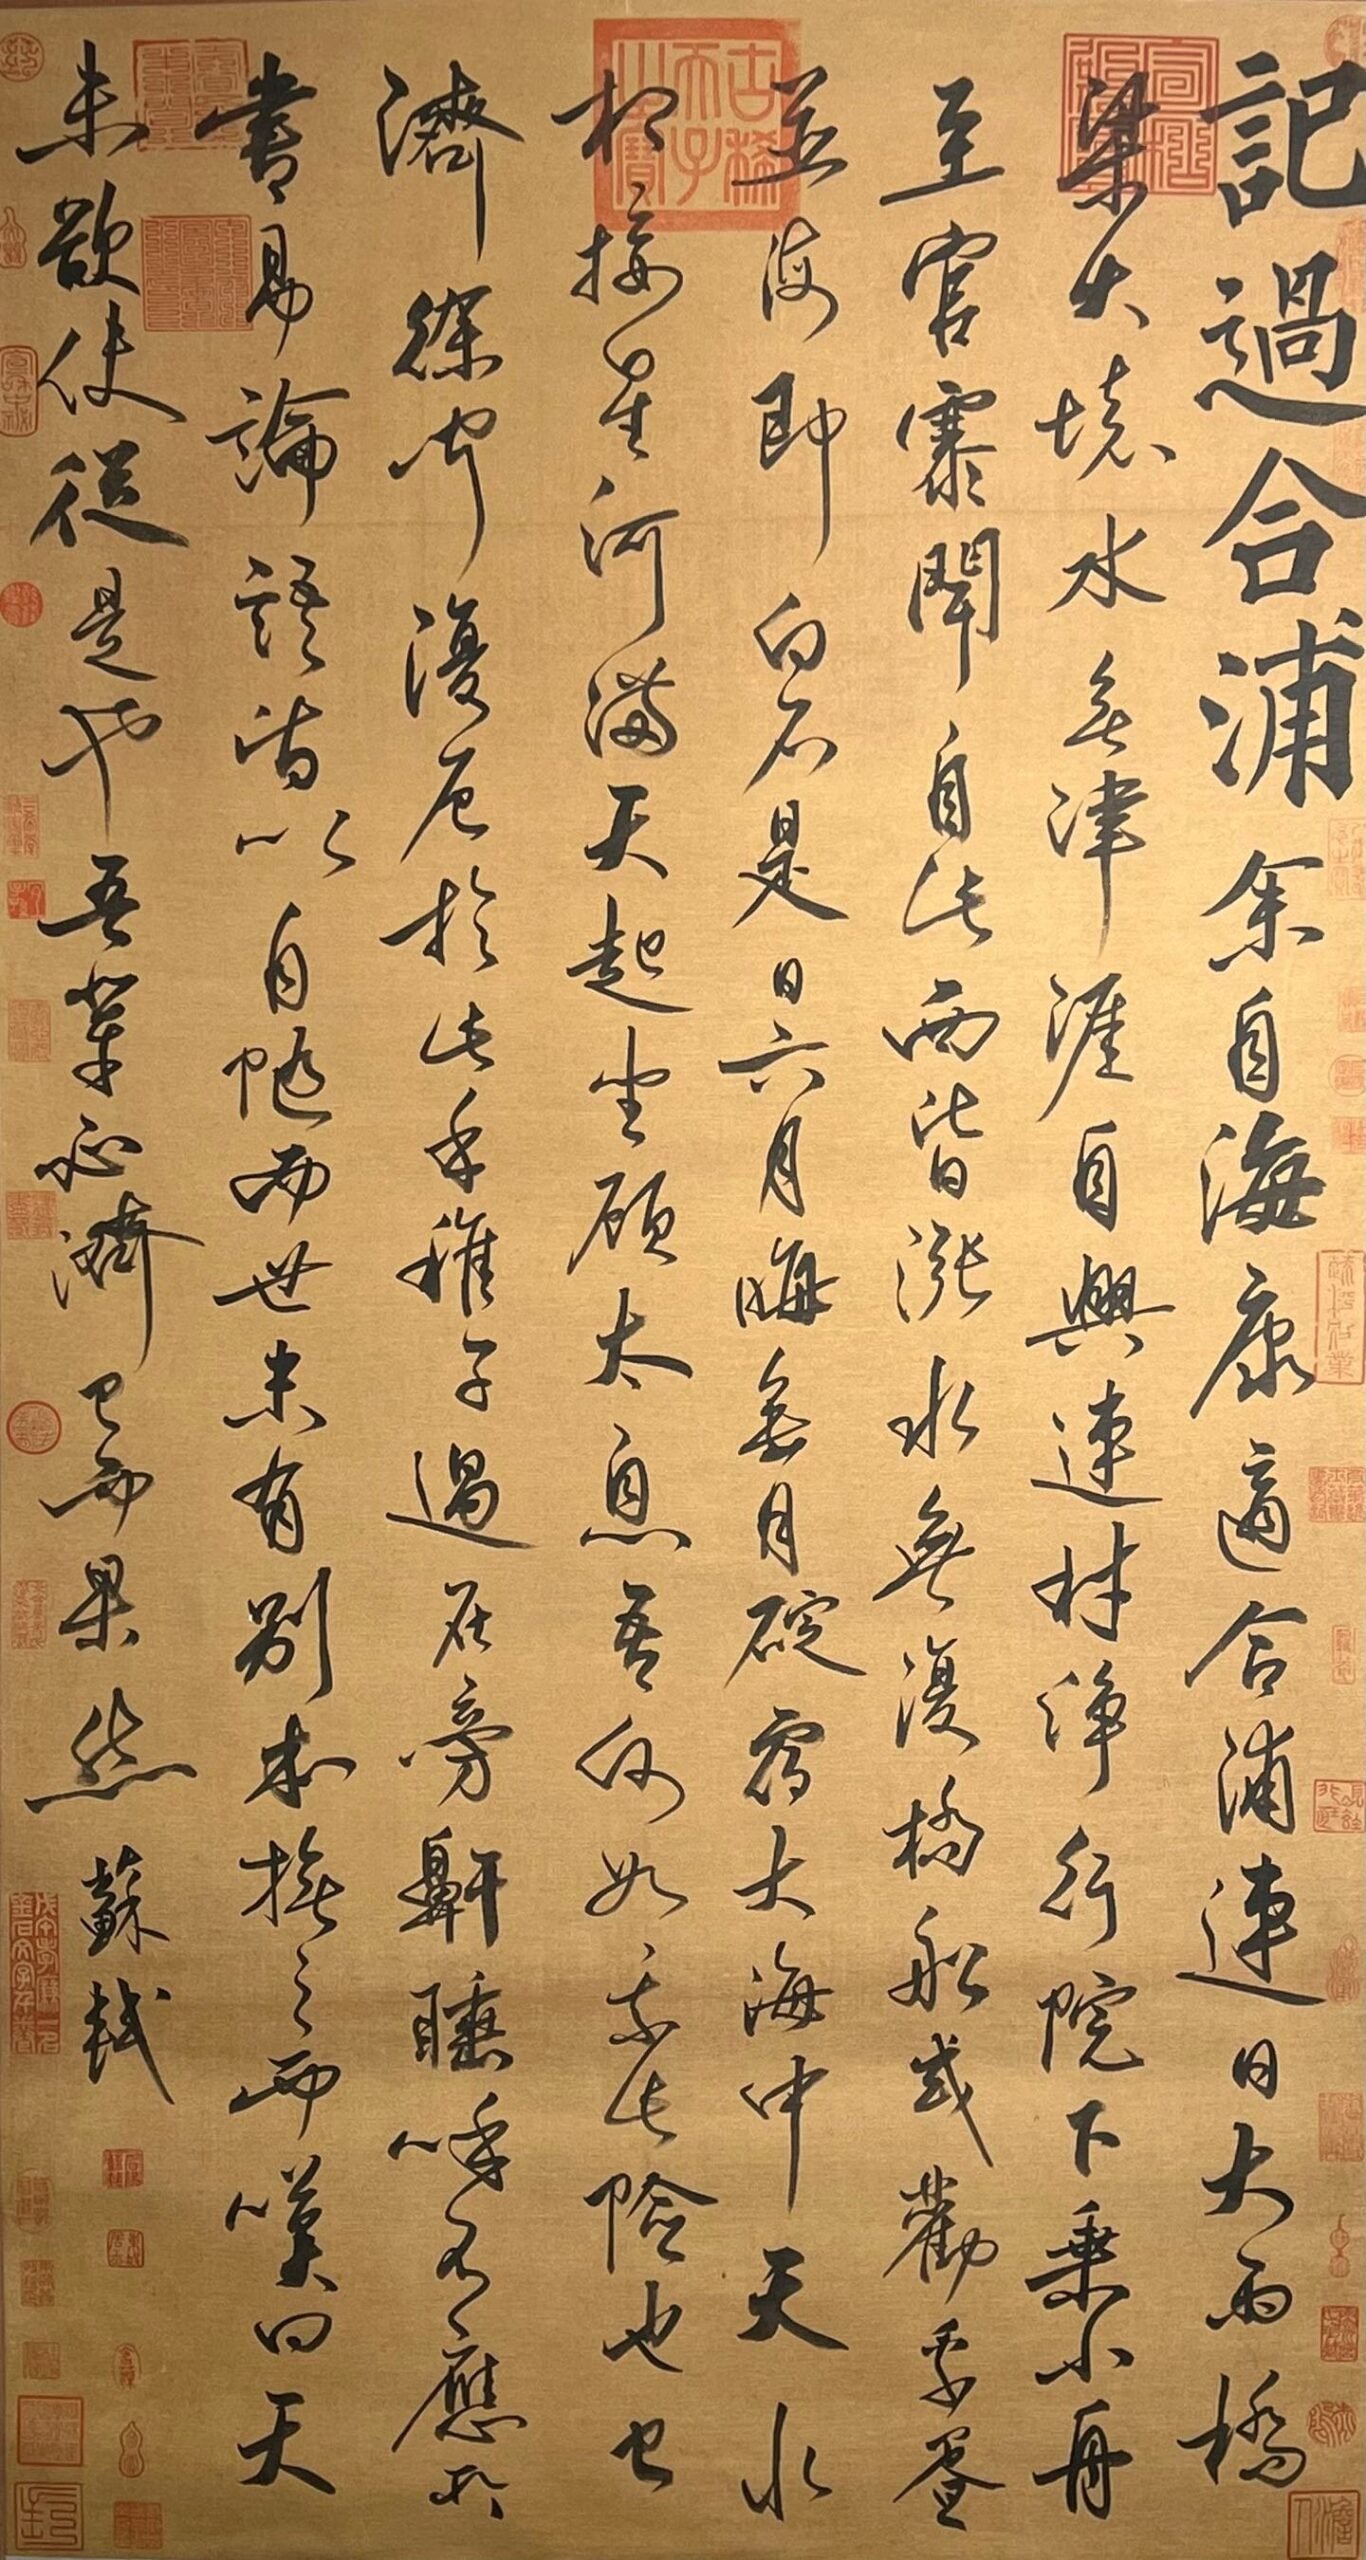 記過合浦 余自海康適合浦連日大雨橋
梁大壞水無津涯自興連村淨行院下乘小舟
至官寨聞自此西皆漲水無復橋船或勸乘蜑
並海即白石是日六月晦無月碇宿大海中天水
相接星河滿天起坐顧太息吾何如乘此險也已
濟徐聞復厄於此乎稚子過在旁鼾睡呼不應所
書易論語皆以自隨而世未有別本撫之而嘆曰天
未欲使從是也吾輩必濟已而果然 蘇軾
古稀天子之寶